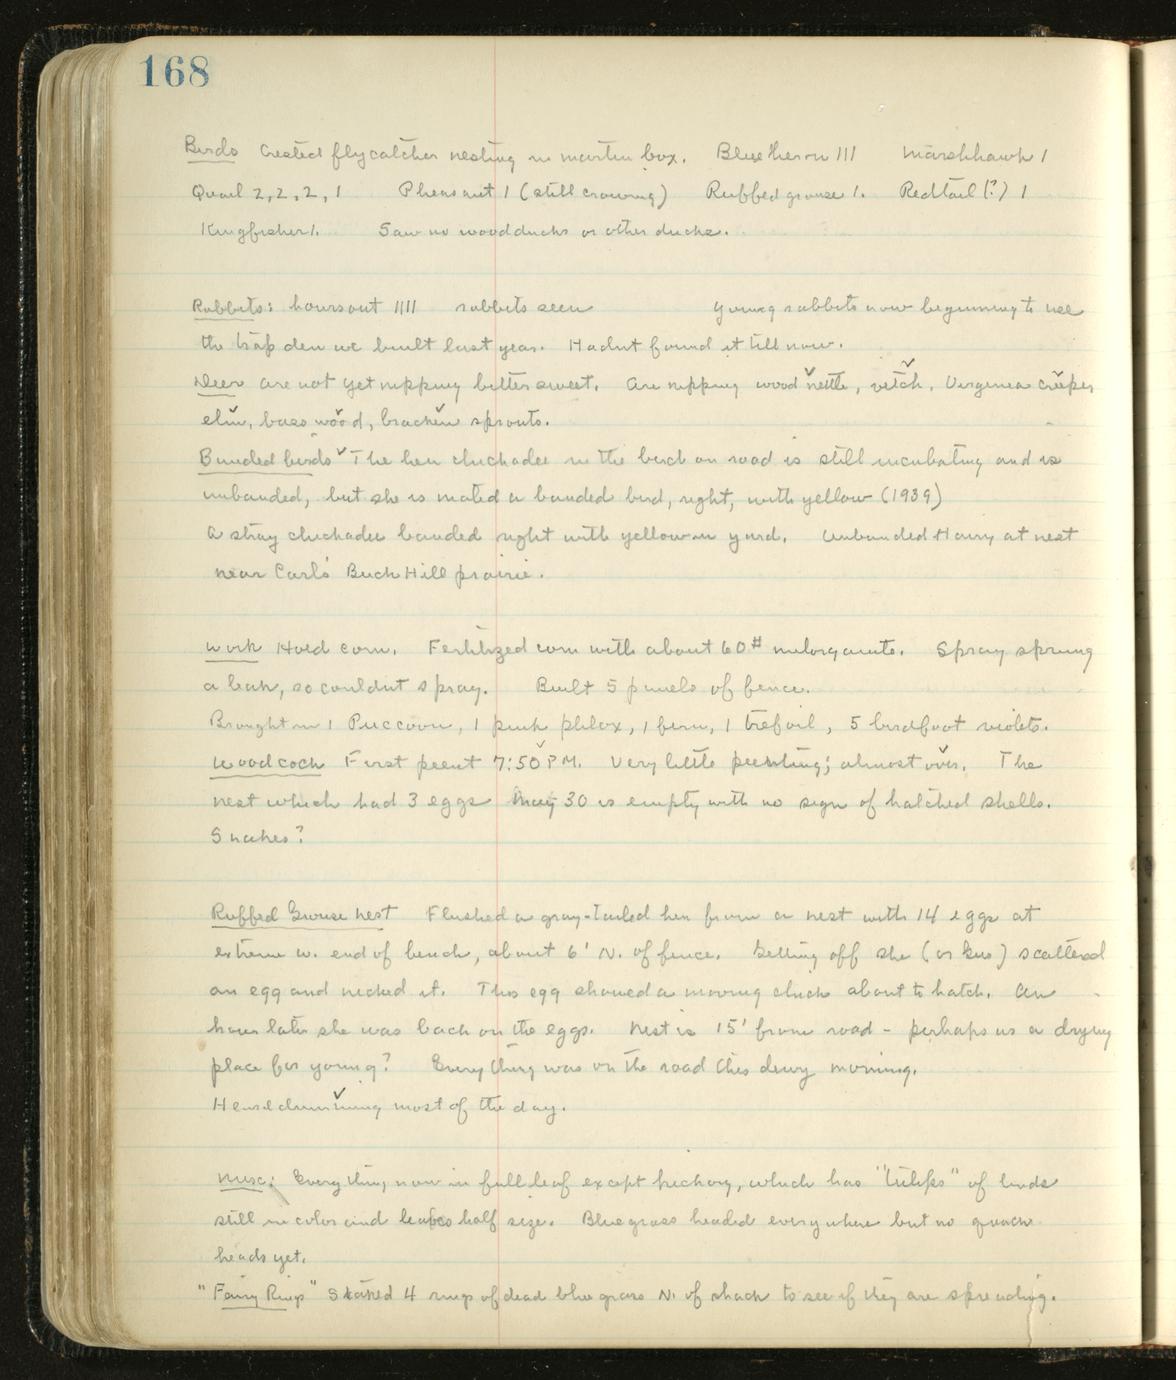 168
Birds Crested flycatcher nesting in martin box. Blue heron III Marshhawk 1
Quail 2, 2, 2, 1 Pheasant 1 (still crowing) Ruffed grouse 1. Redtail (?) 1
Kingfisher 1. Saw no woodducks or other ducks.
Rabbits: hours out IIII rabbits seen young rabbits now beginning to use
the trap den we built last year. Hadnt found it till now.
Deer are not yet nipping bittersweet. Are nipping wood nettle, vetch, Virginia creeper
elm, basswood, bracken sprouts.
Banded birds The hen chickadee in the birch on road is still incubating and is
unbanded, but she is mated a banded bird, right, with yellow (1939)
A stray chickadee banded right with yellow in yard. Unbanded Hairy at nest
near Carl's Buck Hill prairie.
Work Hoed corn. Fertilized corn with about 60# milorganite. Spray sprung
a leak, so couldnt spray. Built 5 panels of fence.
Brought in 1 Puccoon, 1 pink phlox, 1 fern, 1 trefoil, 5 birdfoot violets.
Woodcock First peent 7:50 PM. Very little peenting; almost over. The
nest which had 3 eggs May 30 is empty with no sign of hatched shells.
Snakes?
Ruffed Grouse Nest Flushed a gray-tailed hen from a nest with 14 eggs at
extreme w. end of bench, about 6' N. of fence. Getting off she (or Gus) scattered
an egg and nicked it. This egg showed a moving chick about to hatch. An
hour later she was back on the eggs. Nest is 15' from road - perhaps as a drying
place for young? Everything was on the road this dewy morning.
Heard drumming most of the day.
Misc: Everything now in full leaf except hickory, which has "tulips" of buds
still in color and leaves half size. Bluegrass headed everywhere but no quack
heads yet.
"Fairy Rings" Staked 4 rings of dead blue grass N. of shack to see if they are spreading.